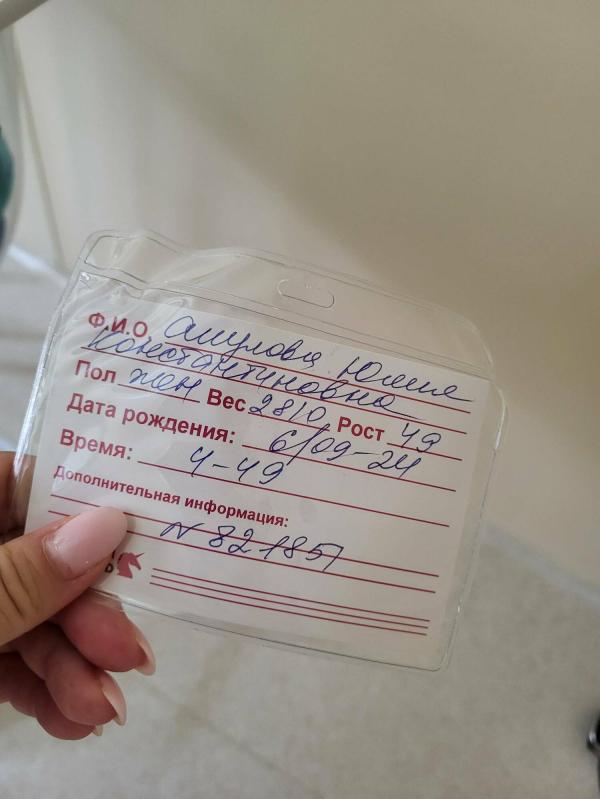 Ф.И.О Юлия
Константиновна
Пол жен Вес 2810 Рост 49
Дата рождения: 6/09-24
Время: 4-49
Дополнительная информация:
N 82185